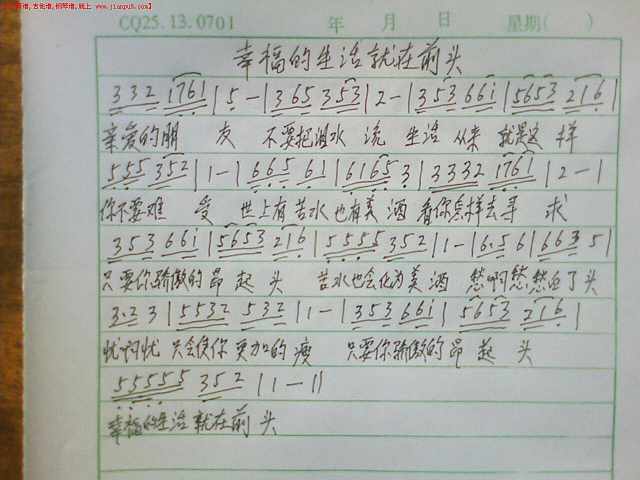 CQ25.13.0701 年 月 日 星期( )
幸福的生活就在前头
3 3 2 1 7 6 1 | 5 - | 3 6 5 3 5 3 | 2 - | 3 5 3 6 6 i | 5 6 5 3 2 1 6 |
亲爱的朋 友 不要把泪水 流 生活 从来 就是这 样
5 5 5 3 5 2 | 1 - | 6 6 5 6 1 | 6 1 6 5 3 | 3 3 3 2 1 7 6 1 | 2 - |
你不要难 受 世上有苦水也有美 酒 看你怎样去寻 求
3 5 3 6 6 i | 5 6 5 3 2 1 6 | 5 5 5 5 3 5 2 | 1 - | 6. 5 6 | 6 6 3 5 |
只要你骄傲的昂 起 头 苦水也会化为美 酒 愁啊愁 愁白了头
3. 2 3 | 5 5 3 2 5 3 2 | 1 - | 3 5 3 6 6 i | 5 6 5 3 2 1 6 |
忧啊忧 只会使你 更加的 瘦 只要你骄傲的昂 起 头
5 5 5 5 5 3 5 2 | 1 - ||
幸福的生活就在前头